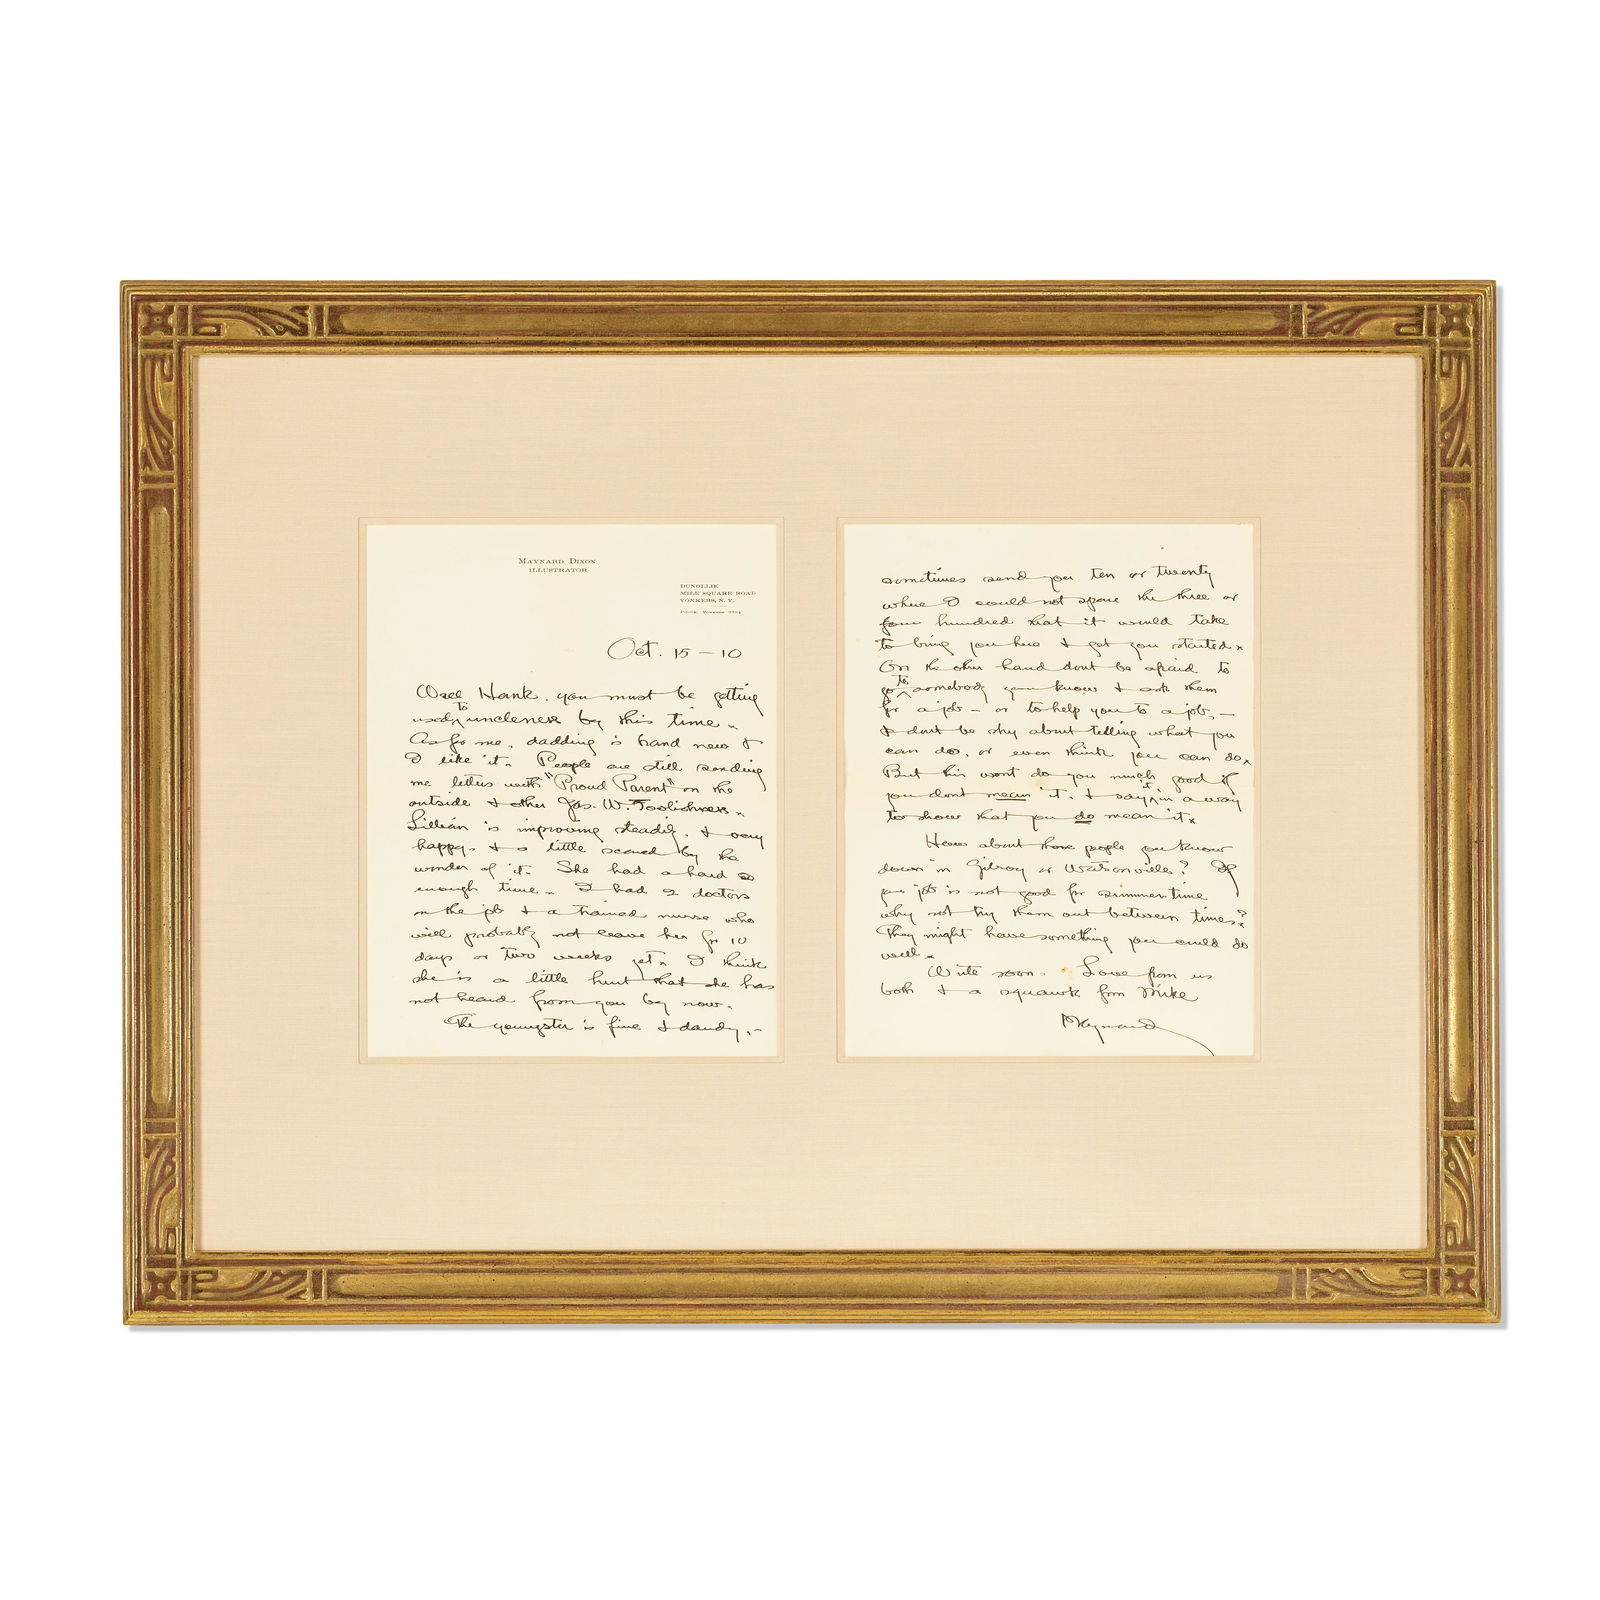 MAYNARD DIXON
ILLUSTRATOR
DUNOLLIE
MILE SQUARE ROAD
YONKERS, N. Y.
PHONE YONKERS
Oct. 15 – 10
Well Hank, you must be getting
used to uncleness by this time.
As for me, dadding is brand new &
I like it. People are still sending
me letters with "Proud Parent" on the
outside & other Jas. W. Foolishness.
Lillian is improving steadily, & very
happy, & a little scared by the
wonder of it. She had a hard
enough time. I had 2 doctors
on the job & a trained nurse who
will probably not leave her for 10
days or two weeks yet. I think
she is a little hurt that she has
not heard from you by now.
The youngster is fine & dandy, –
sometimes send you ten or twenty
where I could not spare the three or
four hundred that it would take
to bring you here & get you started.
On the other hand dont be afraid to
go to somebody you know & ask them
for a job – or to help you to a job, –
& dont be shy about telling what you
can do, or even think you can do.
But this wont do you much good if
you dont mean it, & say it in a way
to show that you do mean it.
How about those people you know
down in Gilroy or Watsonville? If
your job is not good for summer-time
why not try them out between times?
They might have something you could do
well.
Write soon. Love from us
both & a squawk from Mike
Maynard